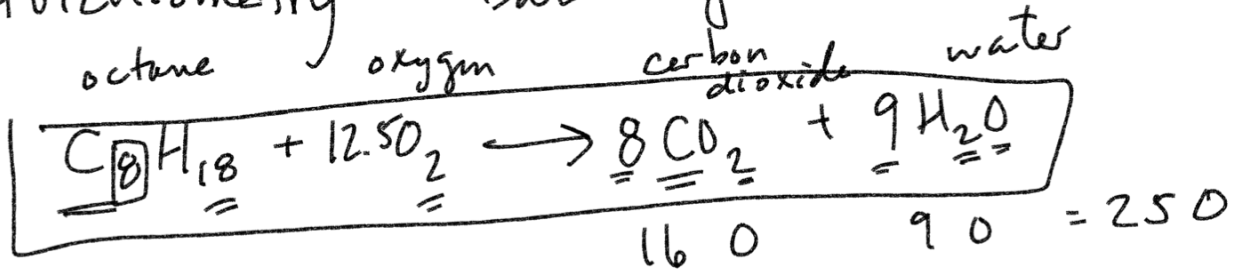 octane oxygen carbon dioxide water
C8H18 + 12.5O2 → 8CO2 + 9H2O
16 O 9 O = 25 O